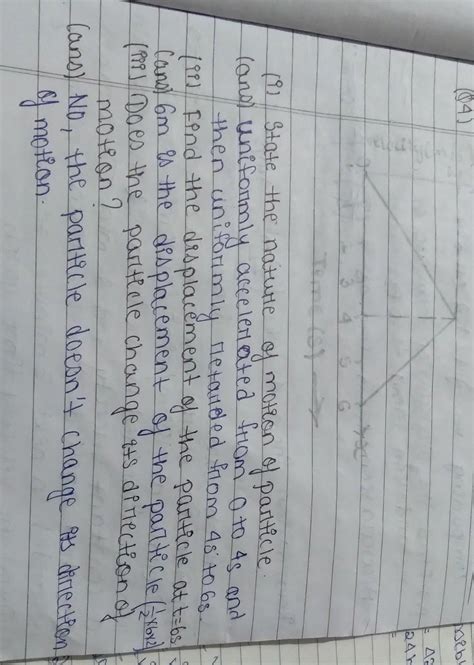 (Q4)
1 2 3 4 5 6
Time (s)
(i) State the nature of motion of particle.
(ans) Uniformly accelerated from 0 to 4s and
then uniformly retarded from 4s to 6s.
(ii) Find the displacement of the particle at t=6s
(ans) 6m is the displacement of the particle (1/2 x6x2)
(iii) Does the particle change its direction of
motion?
(ans) No, the particle doesn't change its direction
of motion.